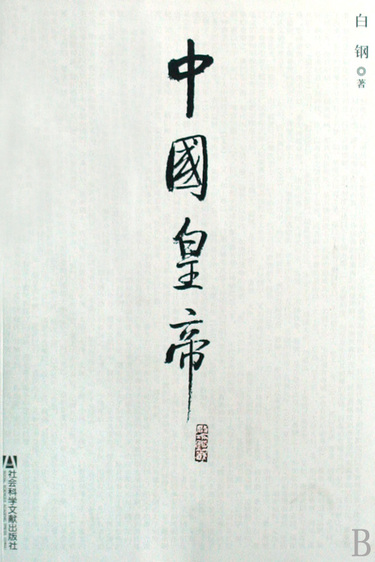 白钢
著
中國皇帝
社会科学文献出版社
B